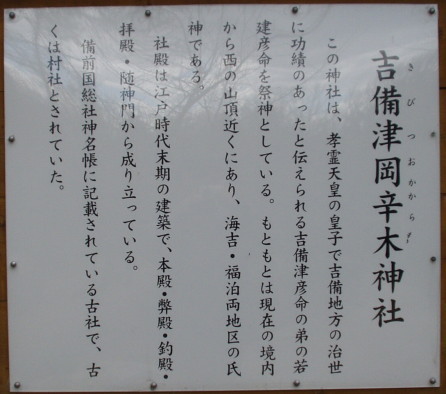 吉備津岡辛木神社
きびつおかからき
この神社は、孝霊天皇の皇子で吉備地方の治世
に功績のあったと伝えられる吉備津彦命の弟の若
建彦命を祭神としている。もともとは現在の境内
から西の山頂近くにあり、海吉・福泊両地区の氏
神である。
社殿は江戸時代末期の建築で、本殿・弊殿・釣殿・
拝殿・随神門から成り立っている。
備前国総社神名帳に記載されている古社で、古
くは村社とされていた。